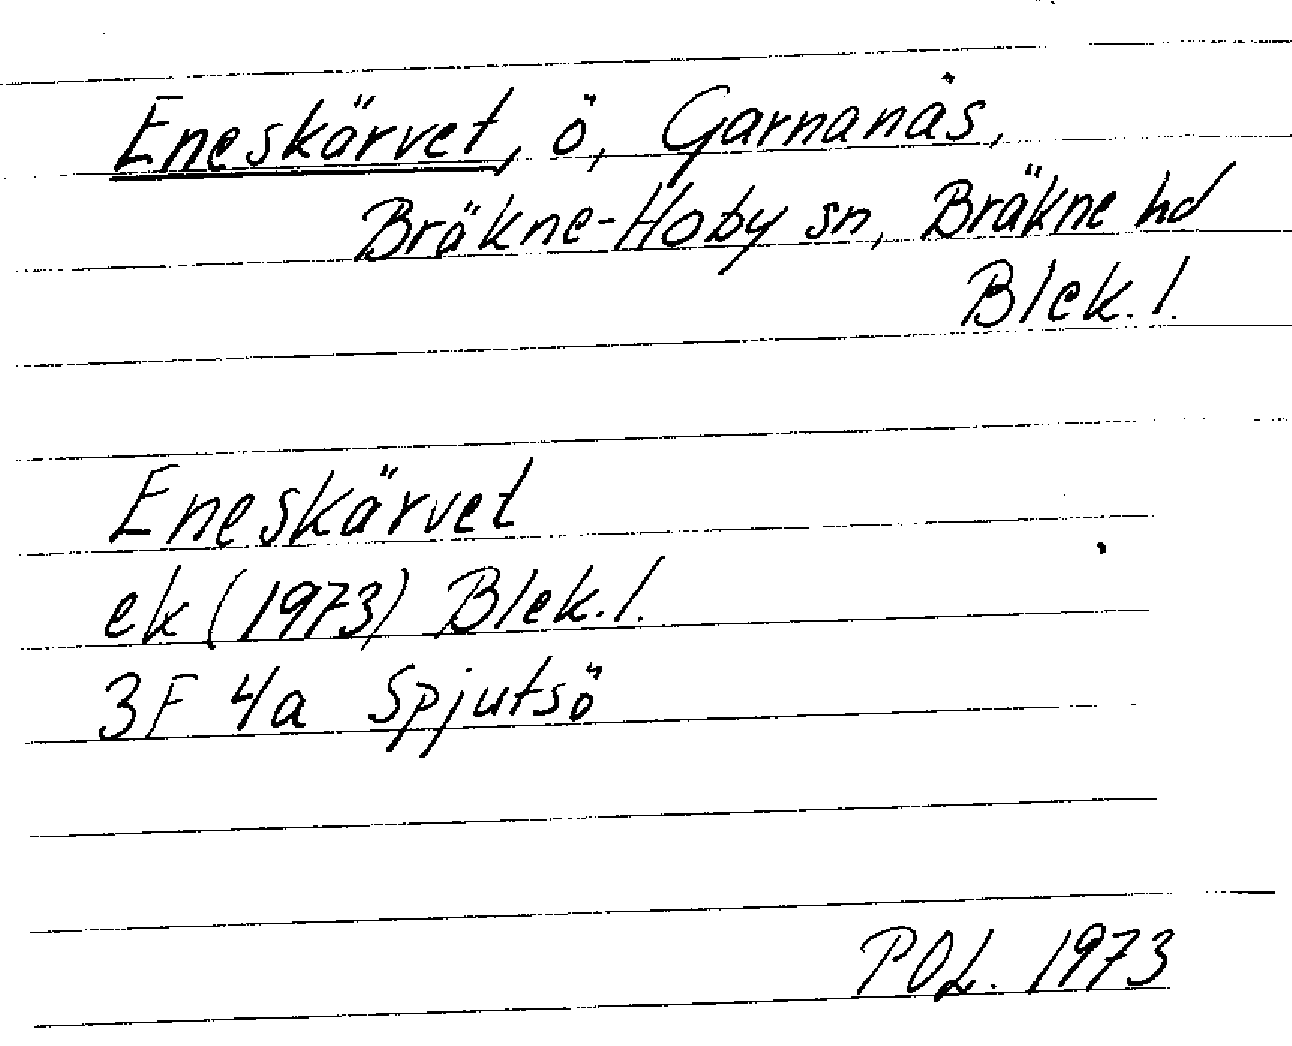 Eneskärvet, ö, Garnanäs,
Bräkne-Hoby sn, Bräkne hd
Blek. l.
Eneskärvet
ek (1973) Blek. l.
3F 4a Spjutsö
POL. 1973